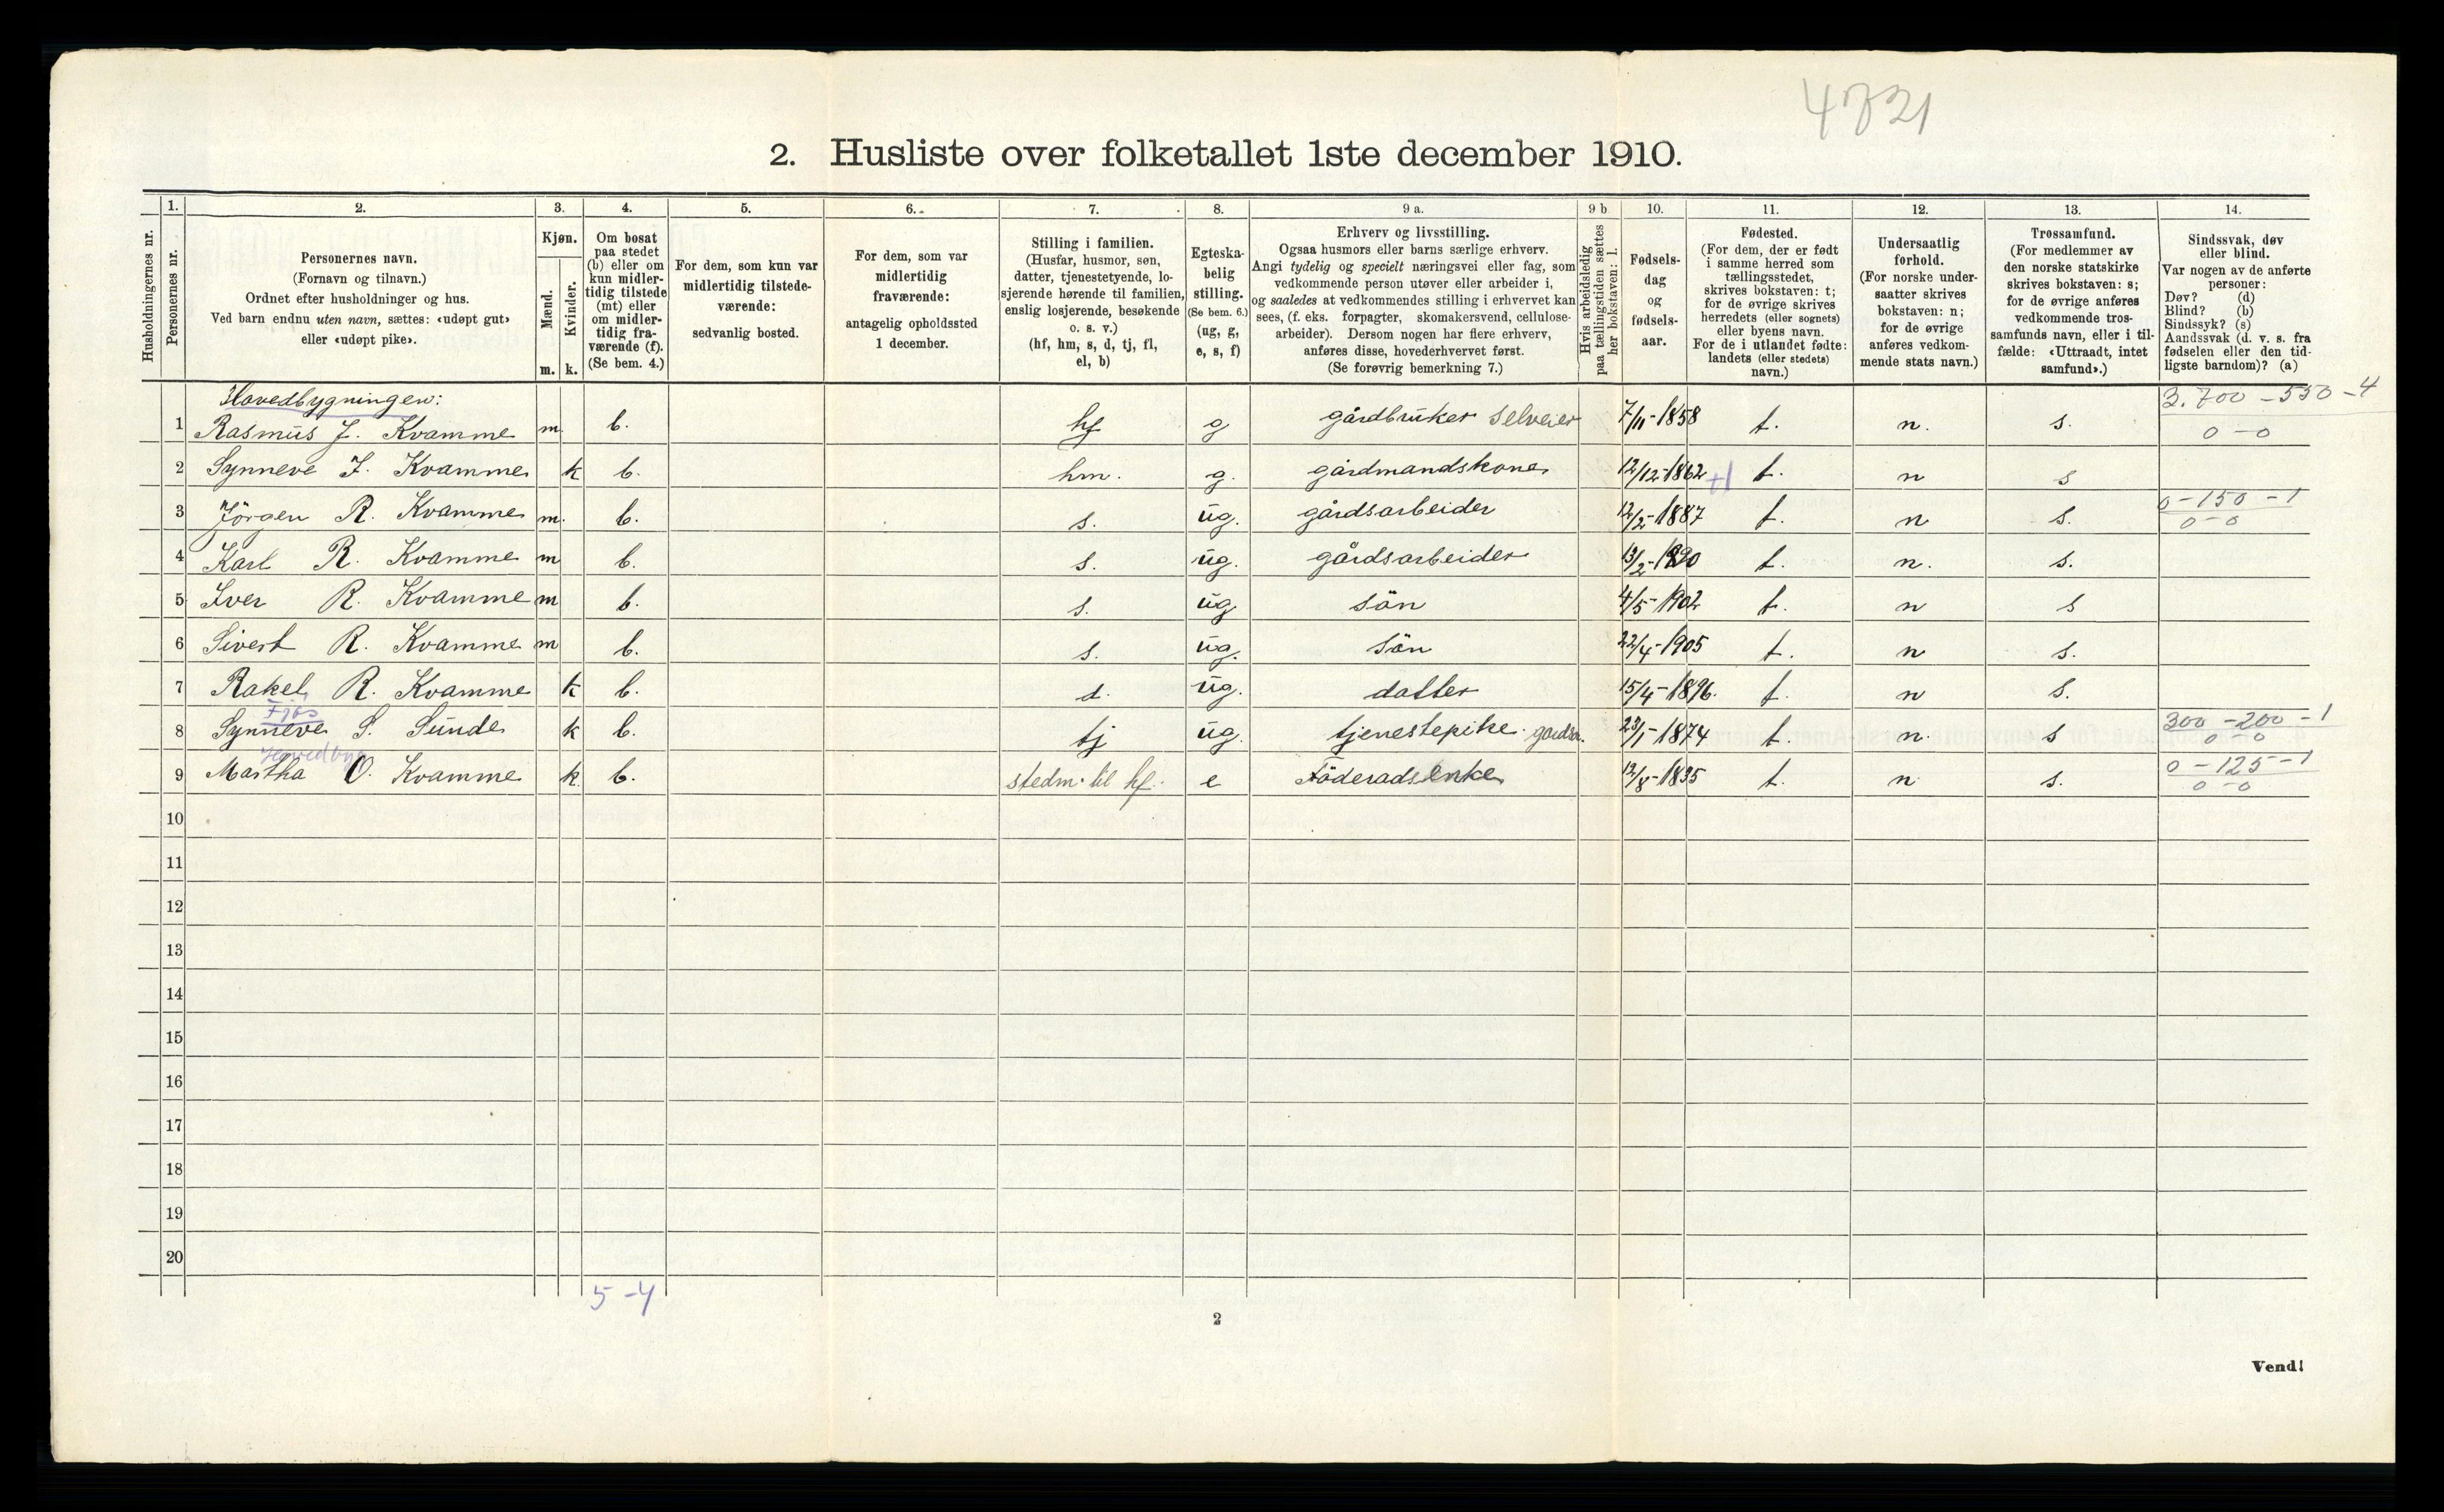 4821
2. Husliste over folketallet 1ste december 1910.
Husholdningernes nr.
1. Personernes nr.
2. Personernes navn. (Fornavn og tilnavn.) Ordnet efter husholdninger og hus. Ved barn endnu uten navn, sættes: «udøpt gut» eller «udøpt pike».
3. Kjøn. Mænd. m. Kvinder. k.
4. Om bosat paa stedet (b) eller om kun midlertidig tilstede (mt) eller om midlertidig fraværende (f). (Se bem. 4.)
5. For dem, som kun var midlertidig tilstedeværende: sedvanlig bosted.
6. For dem, som var midlertidig fraværende: antagelig opholdssted 1 december.
7. Stilling i familien. (Husfar, husmor, søn, datter, tjenestetyende, losjerende hørende til familien, enslig losjerende, besøkende o. s. v.) (hf, hm, s, d, tj, fl, el, b)
8. Egteskabelig stilling. (Se bem. 6.) (ug, g, e, s, f)
9 a. Erhverv og livsstilling. Ogsaa husmors eller barns særlige erhverv. Angi tydelig og specielt næringsvei eller fag, som vedkommende person utøver eller arbeider i, og saaledes at vedkommendes stilling i erhvervet kan sees, (f. eks. forpagter, skomakersvend, cellulosearbeider). Dersom nogen har flere erhverv, anføres disse, hovederhvervet først. (Se forøvrig bemerkning 7.)
9 b Hvis arbeidsledig paa tællingstiden sættes her bokstaven: l.
10. Fødselsdag og fødselsaar.
11. Fødested. (For dem, der er født i samme herred som tællingsstedet, skrives bokstaven: t; for de øvrige skrives herredets (eller sognets) eller byens navn. For de i utlandet fødte: landets (eller stedets) navn.)
12. Undersaatlig forhold. (For norske undersaatter skrives bokstaven: n; for de øvrige anføres vedkommende stats navn.)
13. Trossamfund. (For medlemmer av den norske statskirke skrives bokstaven: s; for de øvrige anføres vedkommende trossamfunds navn, eller i tilfælde: «Uttraadt, intet samfund».)
14. Sindssvak, døv eller blind. Var nogen av de anførte personer: Døv? (d) Blind? (b) Sindssyk? (s) Aandssvak (d. v. s. fra fødselen eller den tidligste barndom)? (a)
Hovedbygningen:
1 Rasmus J. Kvamme m. b. hf g gårdbruker selveier 7/11-1858 t. n. s. 3.700-550-4 0-0
2 Synneve J. Kvamme k b. hm. g. gårdmandskone 12/12-1862 t. n s
3 Jörgen R. Kvamme m. b. s. ug. gårdsarbeider 12/2-1887 t. n s. 0-150-1 0-0
4 Karl R. Kvamme m b. s. ug. gårdsarbeider 13/2-1890 t. n. s.
5 Iver R. Kvamme m b. s. ug sön 4/5-1902 t. n s
6 Sivert R. Kvamme m b. s. ug. sön 22/4-1905 t. n s.
7 Rakel R. Kvamme k b. d. ug. datter 15/4-1896. t. n s.
Fjøs
8 Synneve S. Sunde k b. tj ug. tjenestepike gårdsar. 23/1-1874 t. n. s 300-200-1 0-0
Hovedbyg
9 Martha O. Kvamme k. b. stedm. til hf. e Föderadsenke 12/8-1835 t. n s. 0-125-1 0-0
10
11
12
13
14
15
16
17
18
19
20
5-4
2
Vend!